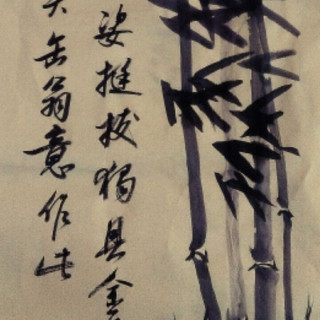 姿挺拔独具金
大缶翁意作此